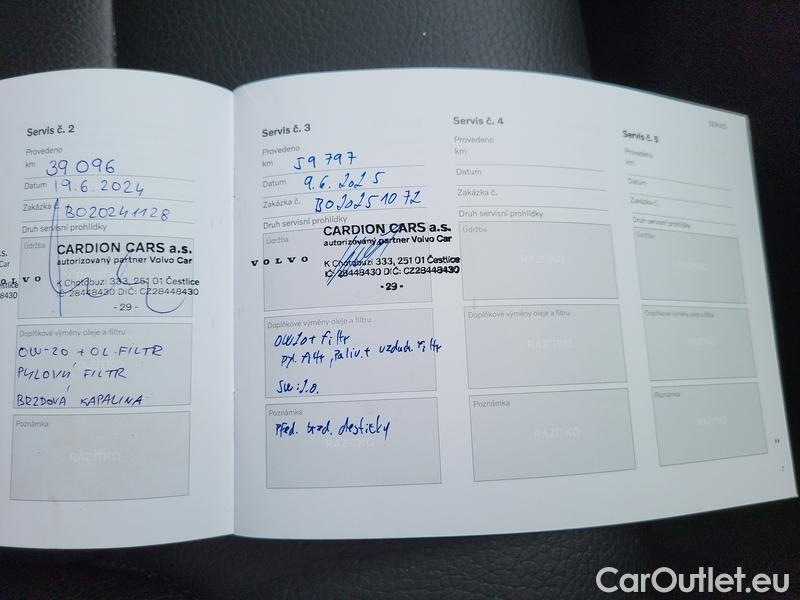 Servis č. 2
Provedeno
km 39 096
Datum 19.6.2024
Zakázka č. BO20241128
Druh servisní prohlídky
Údržba
CARDION CARS a.s.
autorizovaný partner Volvo Car
K Chotobuzi 333, 251 01 Čestlice
IČ: 28448430 DIČ: CZ28448430
- 29 -
Doplňkové výměny oleje a filtru
OW-20 + OL. FILTR
PYLOVÝ FILTR
BRZDOVÁ KAPALINA
Poznámka
RAZÍTKO
Servis č. 3
Provedeno
km 59 797
Datum 9.6.2025
Zakázka č. BO20251072
Druh servisní prohlídky
Údržba
CARDION CARS a.s.
autorizovaný partner Volvo Car
VOLVO
K Chotobuzi 333, 251 01 Čestlice
IČ: 28448430 DIČ: CZ28448430
- 29 -
Doplňkové výměny oleje a filtru
OW20 + filtr
Paliv. + vzduch. filtr
Poznámka
Před. brzd. destičky
RAZÍTKO
Servis č. 4
Provedeno
km
Datum
Zakázka č.
Druh servisní prohlídky
Údržba
RAZÍTKO
Doplňkové výměny oleje a filtru
RAZÍTKO
Poznámka
RAZÍTKO
SERVIS
Servis č. 5
Provedeno
km
Datum
Zakázka č.
Druh servisní prohlídky
Údržba
RAZÍTKO
Doplňkové výměny oleje a filtru
RAZÍTKO
Poznámka
RAZÍTKO
CarOutlet.eu